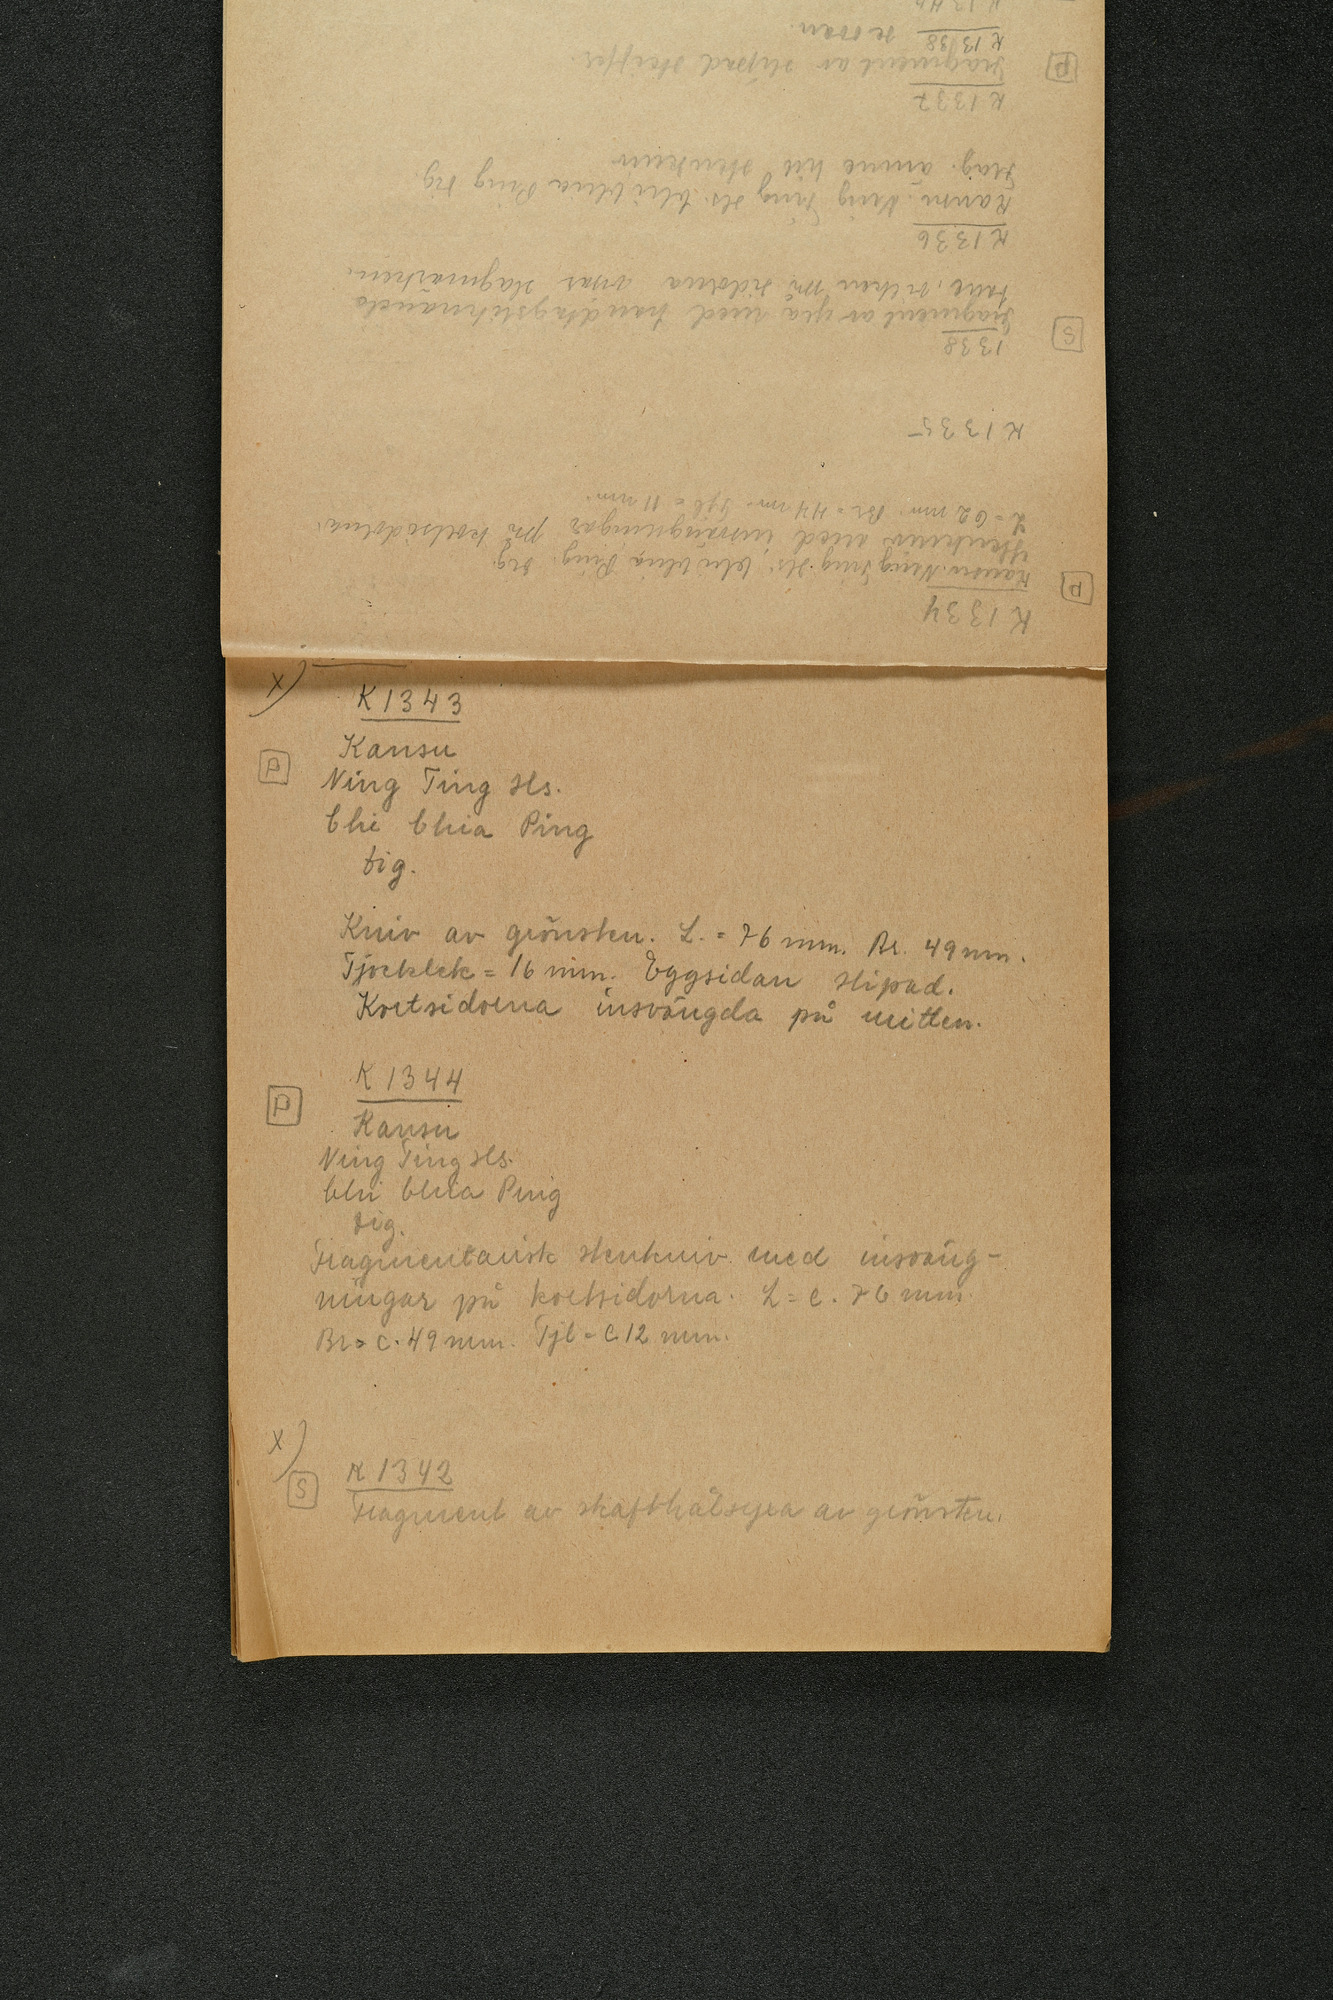 K 1334
P
Kansu. Ning Ting Hs. Chi Chia Ping. tig.
Stenkniv med insvängningar på kortsidorna.
L = 62 mm. Br = 44 mm. Tjl = 11 mm.
K 1335
1338
S
Fragment av yxa med handtagsliknande
visar slagmärken.
K 1336
Kansu. Ning Ting Hs. Chi Chia Ping tig.
Frag. ämne till stenkniv
K 1337
P
Fragment av slipad
K 1338
se ovan.
x)
K 1343
P
Kansu
Ning Ting Hs.
Chi Chia Ping
tig.
Kniv av grönsten. L. = 76 mm. Br. 49 mm.
Tjocklek = 16 mm. Eggsidan slipad.
Kortsidorna insvängda på mitten.
K 1344
P
Kansu
Ning Ting Hs.
Chi Chia Ping
tig.
Fragmentarisk stenkniv med insväng-
ningar på kortsidorna. L = c. 76 mm
Br = c. 49 mm. Tjl = c 12 mm.
x)
S
K 1342
Fragment av skafthålsyxa av grönsten.